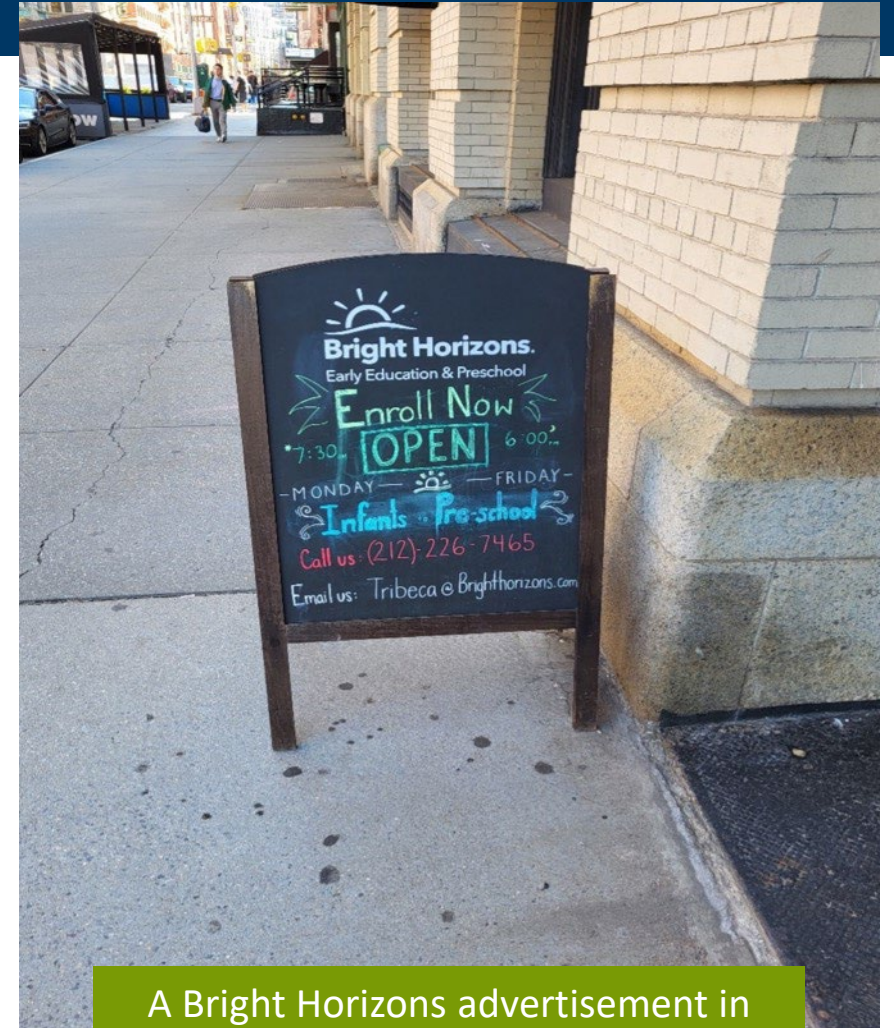 OW
Bright Horizons.
Early Education & Preschool
Enroll Now
7:30 OPEN 6:00
-MONDAY— —FRIDAY-
Infants - Pre-school
Call us: (212)-226-7465
Email us: Tribeca@Brighthorizons.com
A Bright Horizons advertisement in